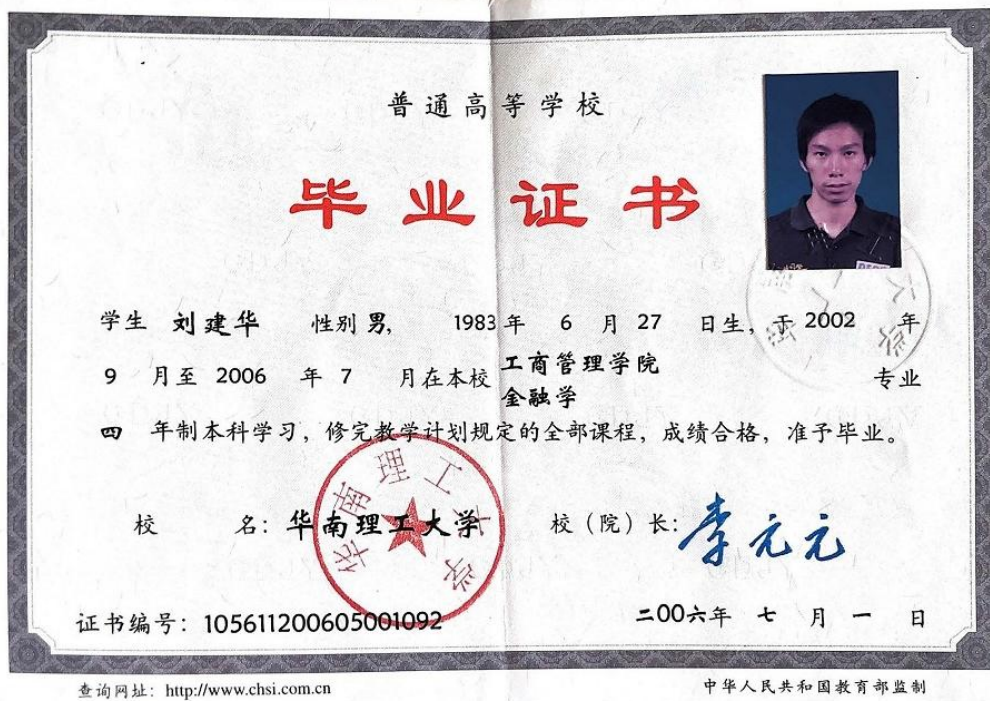 普通高等学校
毕业证书
学生 刘建华 性别 男, 1983 年 6 月 27 日生, 于 2002 年
9 月至 2006 年 7 月在本校 工商管理学院
金融学 专业
四 年制本科学习, 修完教学计划规定的全部课程, 成绩合格, 准予毕业。
华南理工大学
校 名: 华南理工大学 校（院）长: 李元元
证书编号: 105611200605001092 二00六年 七 月 一 日
查询网址: http://www.chsi.com.cn 中华人民共和国教育部监制